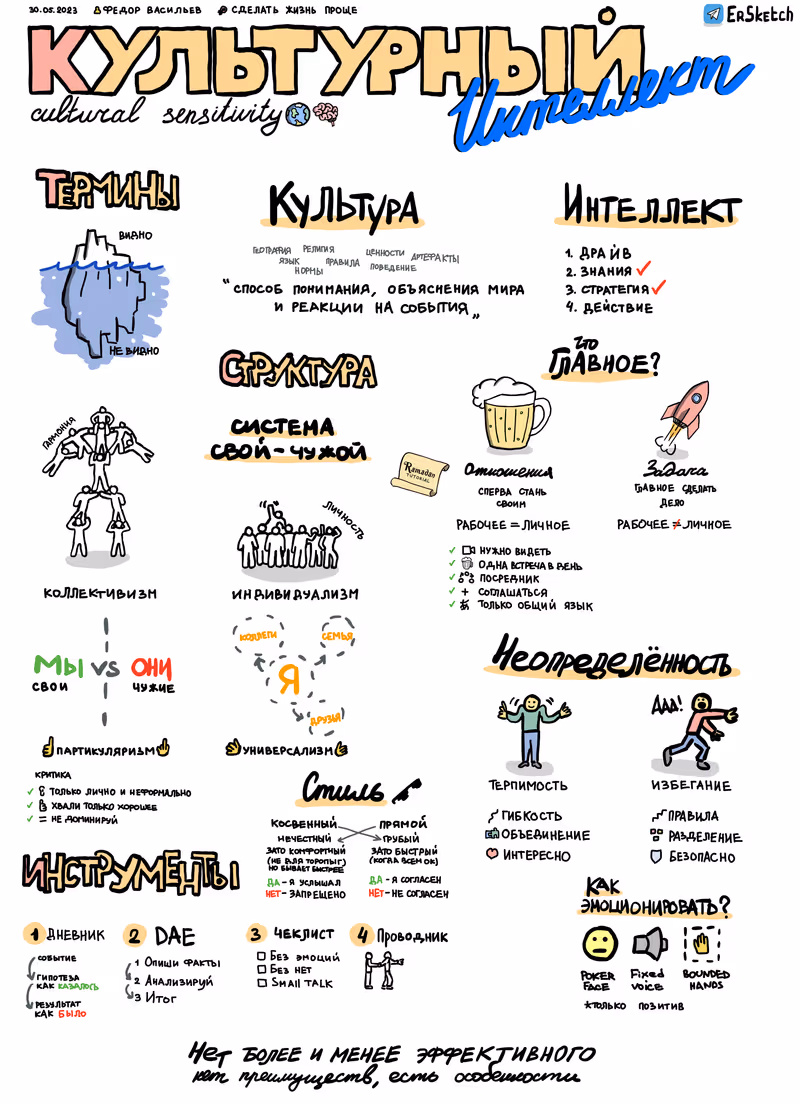 30.05.2023 ФЕДОР ВАСИЛЬЕВ СДЕЛАТЬ ЖИЗНЬ ПРОЩЕ
ErSketch
КУЛЬТУРНЫЙ
Интеллект
cultural sensitivity
ТЕРМИНЫ
ВИДНО
НЕ ВИДНО
КУЛЬТУРА
ГЕОГРАФИЯ РЕЛИГИЯ ЦЕННОСТИ АРТЕФАКТЫ
ЯЗЫК ПРАВИЛА ПОВЕДЕНИЕ
НОРМЫ
"СПОСОБ ПОНИМАНИЯ, ОБЪЯСНЕНИЯ МИРА
И РЕАКЦИИ НА СОБЫТИЯ"
ИНТЕЛЛЕКТ
1. ДРАЙВ
2. ЗНАНИЯ ✓
3. СТРАТЕГИЯ ✓
4. ДЕЙСТВИЕ
СТРУКТУРА
СИСТЕМА
СВОЙ-ЧУЖОЙ
ГАРМОНИЯ
КОЛЛЕКТИВИЗМ
ЛИЧНОСТЬ
ИНДИВИДУАЛИЗМ
МЫ VS ОНИ
СВОИ ЧУЖИЕ
ПАРТИКУЛЯРИЗМ
КОЛЛЕГИ СЕМЬЯ
Я
ДРУЗЬЯ
УНИВЕРСАЛИЗМ
КРИТИКА
✓ ТОЛЬКО ЛИЧНО И НЕФОРМАЛЬНО
✓ ХВАЛИ ТОЛЬКО ХОРОШЕЕ
✓ = НЕ ДОМИНИРУЙ
ЧТО
ГЛАВНОЕ?
Ramadan
TUTORIAL
Отношения
СПЕРВА СТАНЬ
СВОИМ
РАБОЧЕЕ = ЛИЧНОЕ
Задача
ГЛАВНОЕ СДЕЛАТЬ
ДЕЛО
РАБОЧЕЕ ≠ ЛИЧНОЕ
✓ НУЖНО ВИДЕТЬ
✓ ОДНА ВСТРЕЧА В ДЕНЬ
✓ ПОСРЕДНИК
✓ + СОГЛАШАТЬСЯ
✓ ТОЛЬКО ОБЩИЙ ЯЗЫК
Неопределённость
ТЕРПИМОСТЬ
ГИБКОСТЬ
ОБЪЕДИНЕНИЕ
ИНТЕРЕСНО
ААА!
ИЗБЕГАНИЕ
ПРАВИЛА
РАЗДЕЛЕНИЕ
БЕЗОПАСНО
Стиль
КОСВЕННЫЙ ПРЯМОЙ
НЕЧЕСТНЫЙ ГРУБЫЙ
ЗАТО КОМФОРТНЫЙ
(НЕ ДЛЯ ТОРОПЫГ)
НО БЫВАЕТ БЫСТРЕЕ
ДА - Я УСЛЫШАЛ
НЕТ - ЗАПРЕЩЕНО
ЗАТО БЫСТРЫЙ
(КОГДА ВСЕМ ОК)
ДА - Я СОГЛАСЕН
НЕТ - НЕ СОГЛАСЕН
ИНСТРУМЕНТЫ
1 ДНЕВНИК
СОБЫТИЕ
ГИПОТЕЗА
КАК КАЗАЛОСЬ
РЕЗУЛЬТАТ
КАК БЫЛО
2 DAE
1 Опиши факты
2 Анализируй
3 Итог
3 ЧЕКЛИСТ
Без эмоций
Без нет
Small talk
4 Проводник
КАК
ЭМОЦИОНИРОВАТЬ?
POKER
FACE
Fixed
voice
BOUNDED
HANDS
*ТОЛЬКО ПОЗИТИВ
НЕТ БОЛЕЕ И МЕНЕЕ ЭФФЕКТИВНОГО
нет преимуществ, есть особенности